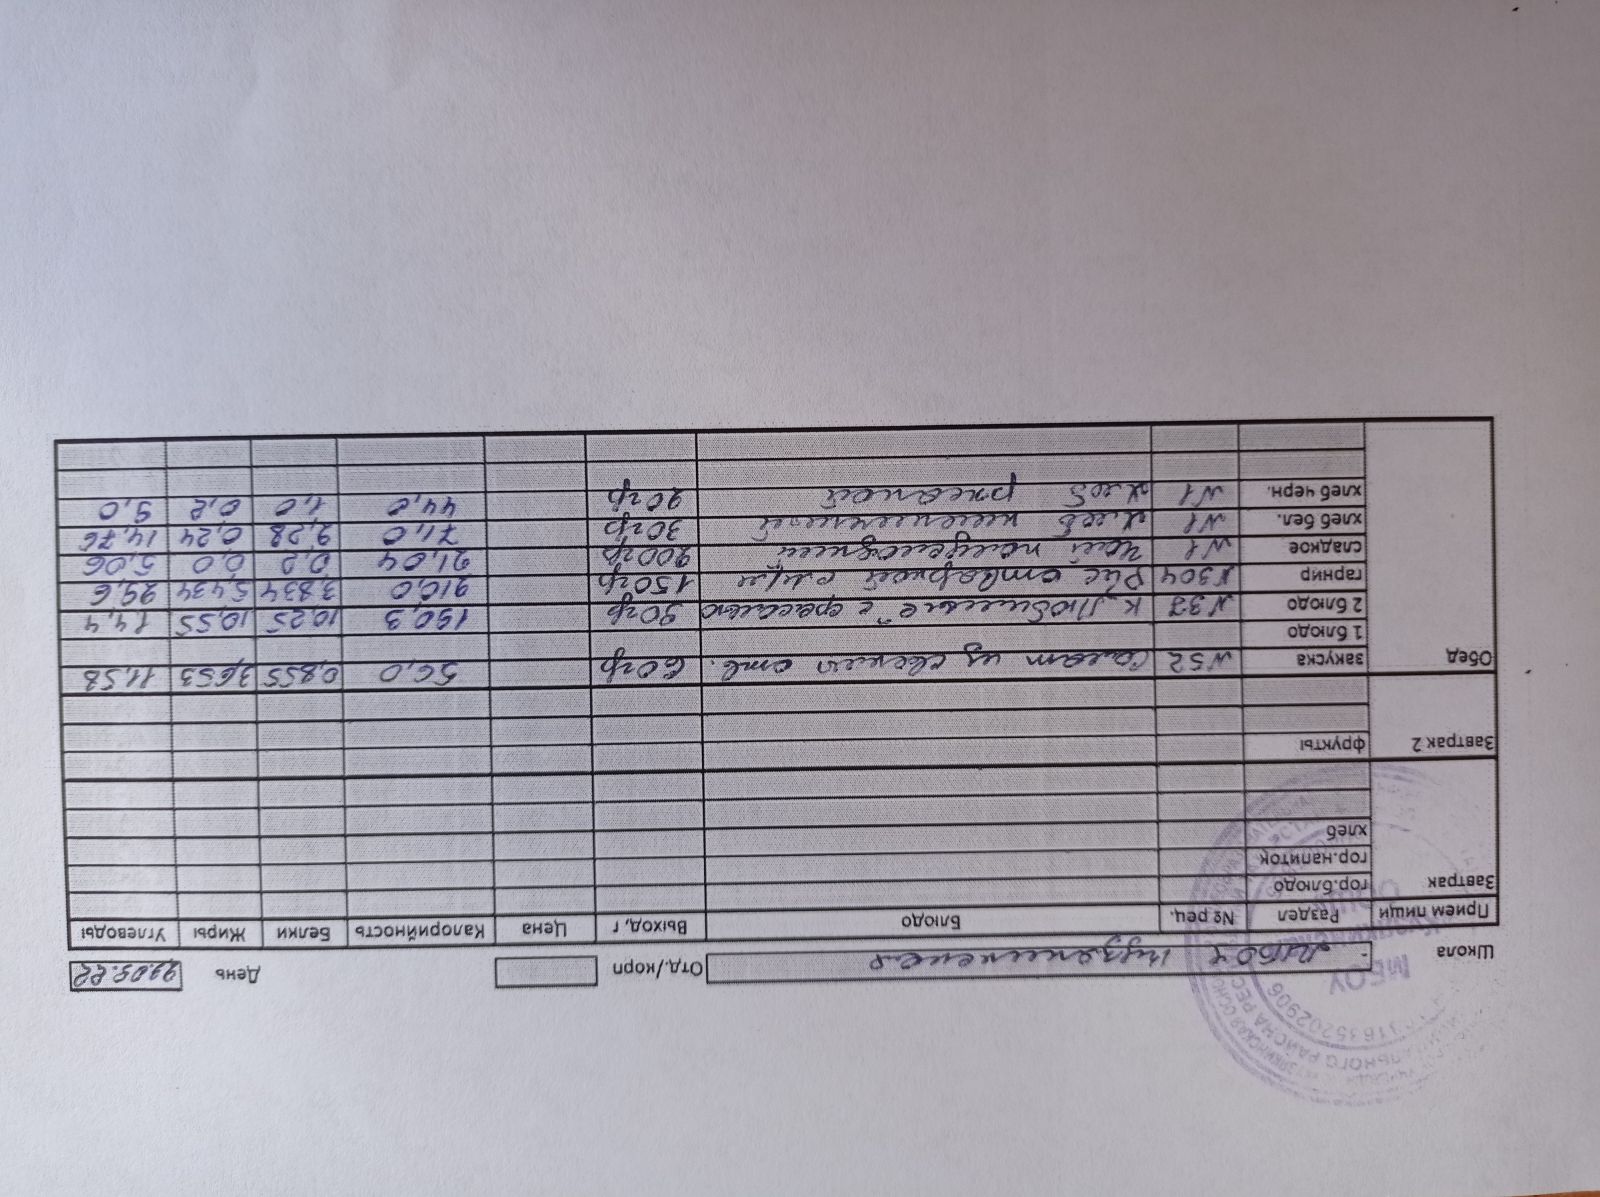 Школа Отд./корп День 23.09.22
Прием пищи Раздел № рец. Блюдо Выход, г Цена Калорийность Белки Жиры Углеводы
Завтрак гор.блюдо
гор.напиток
хлеб
Завтрак 2 фрукты
Обед закуска №52 Салат из свекл отв. 60гр 56,0 0,855 3,653 11,58
1 блюдо
2 блюдо №37 К Любительские с фасолью 90гр 190,3 10,25 10,55 14,4
гарнир №304 Рис отварной слив 150гр 210,0 3,834 5,434 29,6
сладкое №1 Чай 200гр 21,04 0,2 0,0 5,06
хлеб бел. №1 Хлеб пшеничный 30гр 71,0 2,28 0,24 14,76
хлеб черн. №1 Хлеб ржаной 20гр 44,0 1,0 0,2 9,0
МБОУ